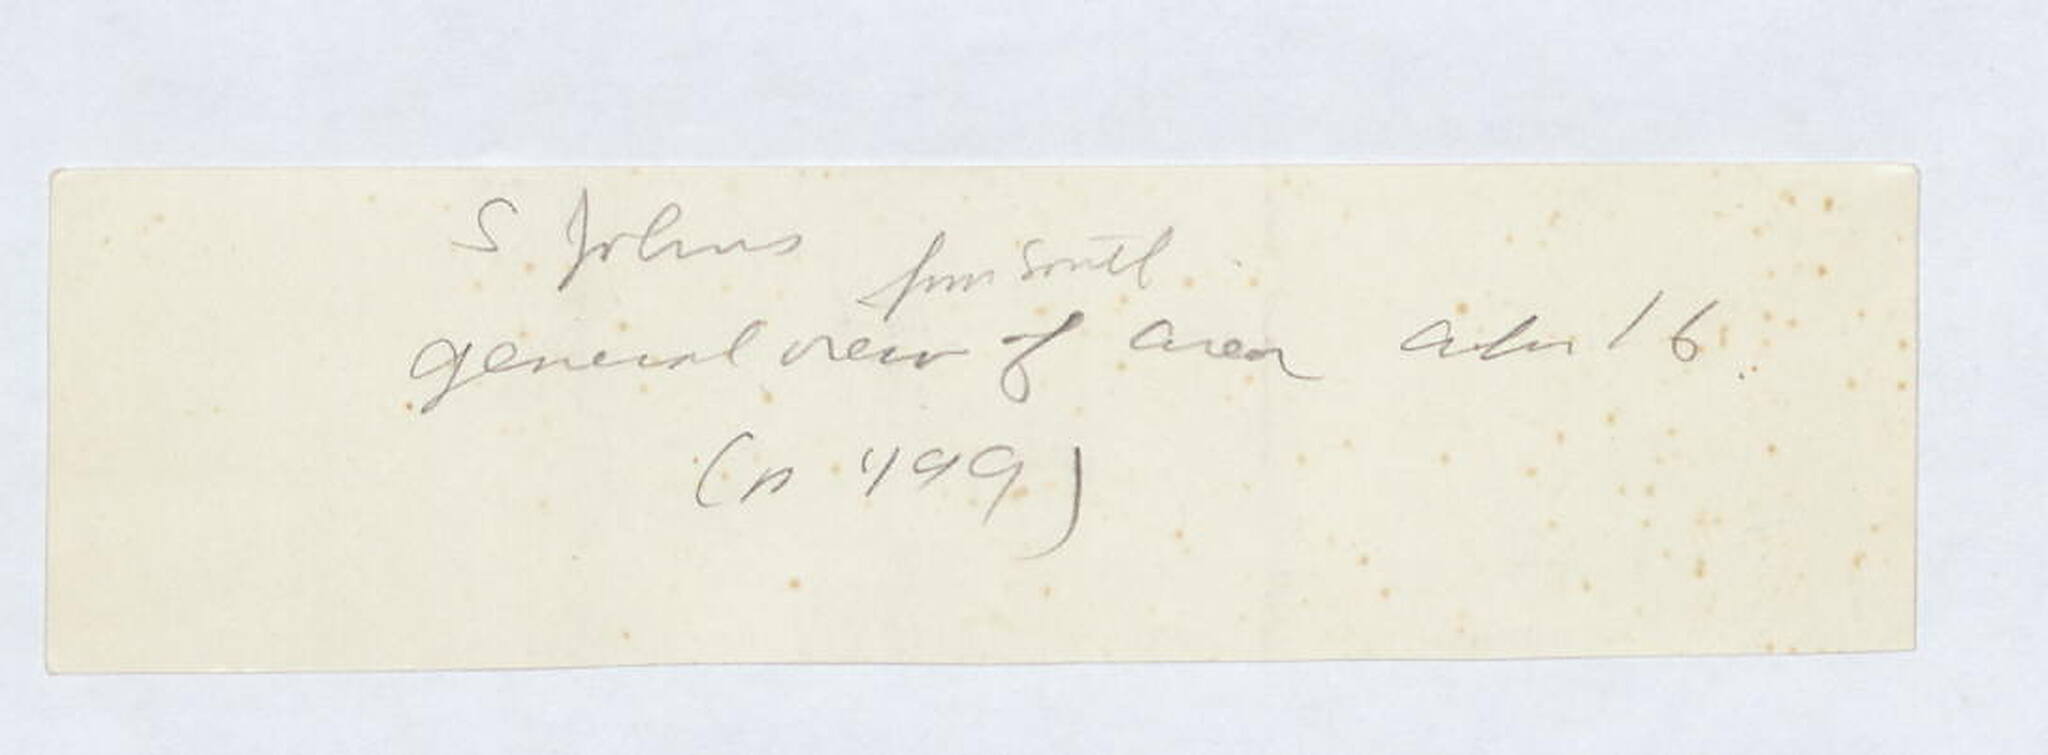 S Johns
from South
general view of area after 16.
(p 499)